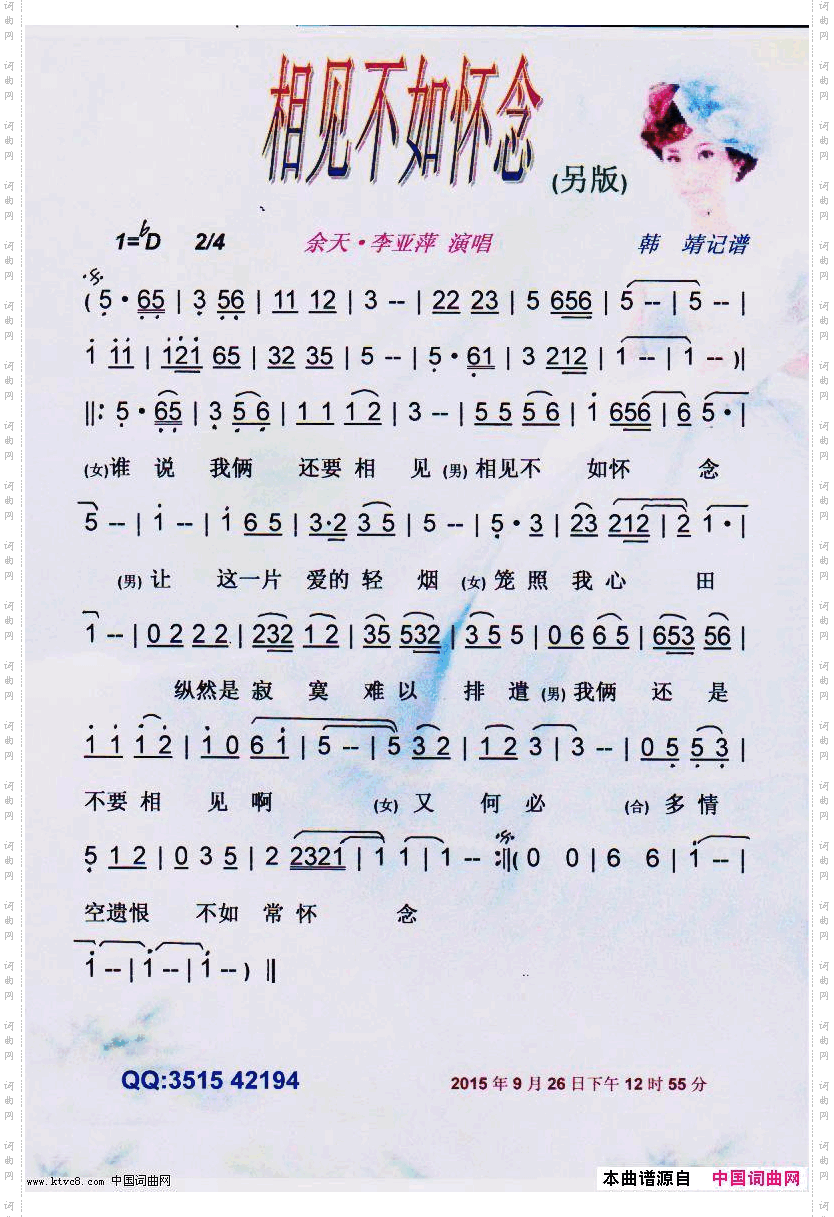 相见不如怀念
(另版)
1=♭D 2/4 余天·李亚萍 演唱 韩 靖记谱
( 5 · 65 | 3 56 | 11 12 | 3 -- | 22 23 | 5 656 | 5 -- | 5 -- |
1 11 | 121 65 | 32 35 | 5 -- | 5 · 61 | 3 212 | 1 -- | 1 -- )||
||: 5 · 65 | 3 5 6 | 1 1 1 2 | 3 -- | 5 5 5 6 | 1 656 | 6 5 · |
(女)谁 说 我俩 还要 相 见 (男) 相见不 如怀 念
5 -- | 1 -- | 1 6 5 | 3·2 3 5 | 5 -- | 5 · 3 | 23 212 | 2 1 · |
(男) 让 这一片 爱的 轻 烟 (女) 笼 照 我 心 田
1 -- | 0 2 2 2 | 232 1 2 | 35 532 | 3 5 5 | 0 6 6 5 | 653 56 |
纵然是 寂 寞 难 以 排 遣 (男) 我俩 还 是
1 1 1 2 | 1 0 6 1 | 5 -- | 5 3 2 | 1 2 3 | 3 -- | 0 5 5 3 |
不要 相 见 啊 (女) 又 何 必 (合) 多 情
5 1 2 | 0 3 5 | 2 2321 | 1 1 | 1 -- :||( 0 0 | 6 6 | 1 -- |
空遗恨 不如 常 怀 念
1 -- | 1 -- | 1 -- ) ||
QQ:3515 42194
2015 年 9 月 26 日下午 12 时 55 分
www.ktvc8.com 中国词曲网
本曲谱源自 中国词曲网